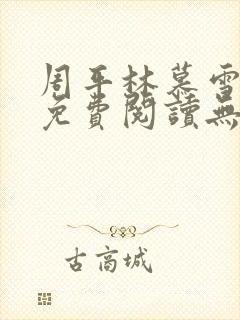 周平林慕雪
免費閱讀無
古高城